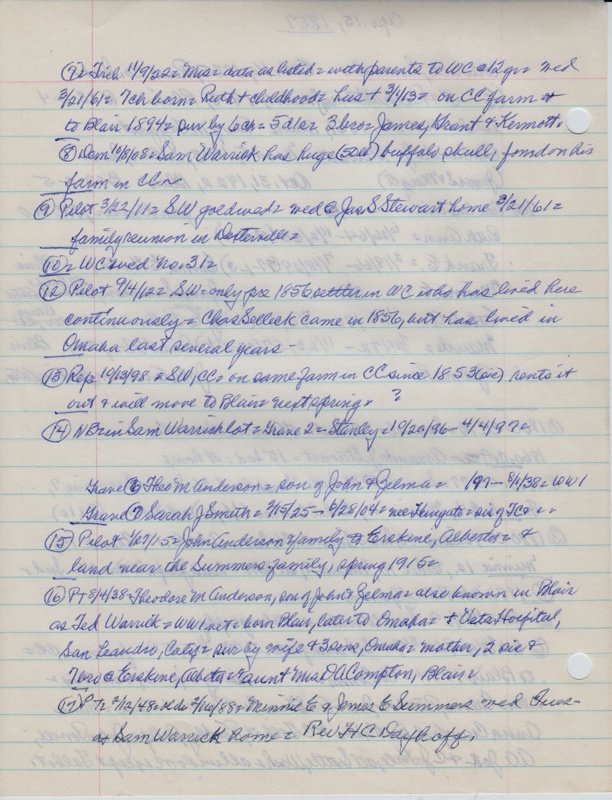 ⑦ = Trib 11/9/22 = Mrs = data as listed = with parents to WC @ 12 yr = med
3/21/61 = 7ch born = Ruth + childhood = hus + 3/4/13 = on CC farm +
to Blair 1894 = surv by 6ch = 5da = 3 bro = James, Grant & Kermott =
⑧ Dem 10/8/08 = Sam Warrick has huge buffalo skull, found on his
farm in CC =
⑨ Pilot 3/22/11 = SW gold wed = wed @ Jas S Stewart home 3/21/61 =
family reunion in Dexterville =
⑩ = WC wed No. 31 =
⑫ Pilot 9/4/12 = SW = only pre 1856 settler in WC who has lived here
continuously = Chas Sellick came in 1856, but has lived in
Omaha last several years -
⑬ Rep 10/13/98 = SW, CC = on same farm in CC since 1853 (sic) rents it
out & will move to Blair next spring = ?
⑭ in Sam Warrick lot = Grave 2 = Stanley = 19/20/96 - 4/4/97 =
Grave ⑥ Theo M Anderson = son of John & Zelma = 197 - 8/1/38 = WW1
Grave ⑦ Sarah J Smith = 2/15/25 - 6/28/04 = nee Fungate = sis of JC + = =
⑮ Pilot 1/27/15 = John Anderson & family to Erskine, Alberta = &
land near the Summers family, spring 1915 =
⑯ PT 8/4/38 = Theodore M Anderson, son of John & Zelma = also known in Blair
as Ted Warrick = WW1 vet = born Blair, later to Omaha = + Vets Hospital,
San Leandro, Caly = sur by wife & 3 sons, Omaha = mother, 2 sis &
7 bro @ Erskine, Alberta = aunt Mrs DA Compton, Blair =
⑰ 2/12/48 = 2/10/88 = Minnie E & James E Summers wed
at Sam Warrick home = Rev HC Dayhoff,